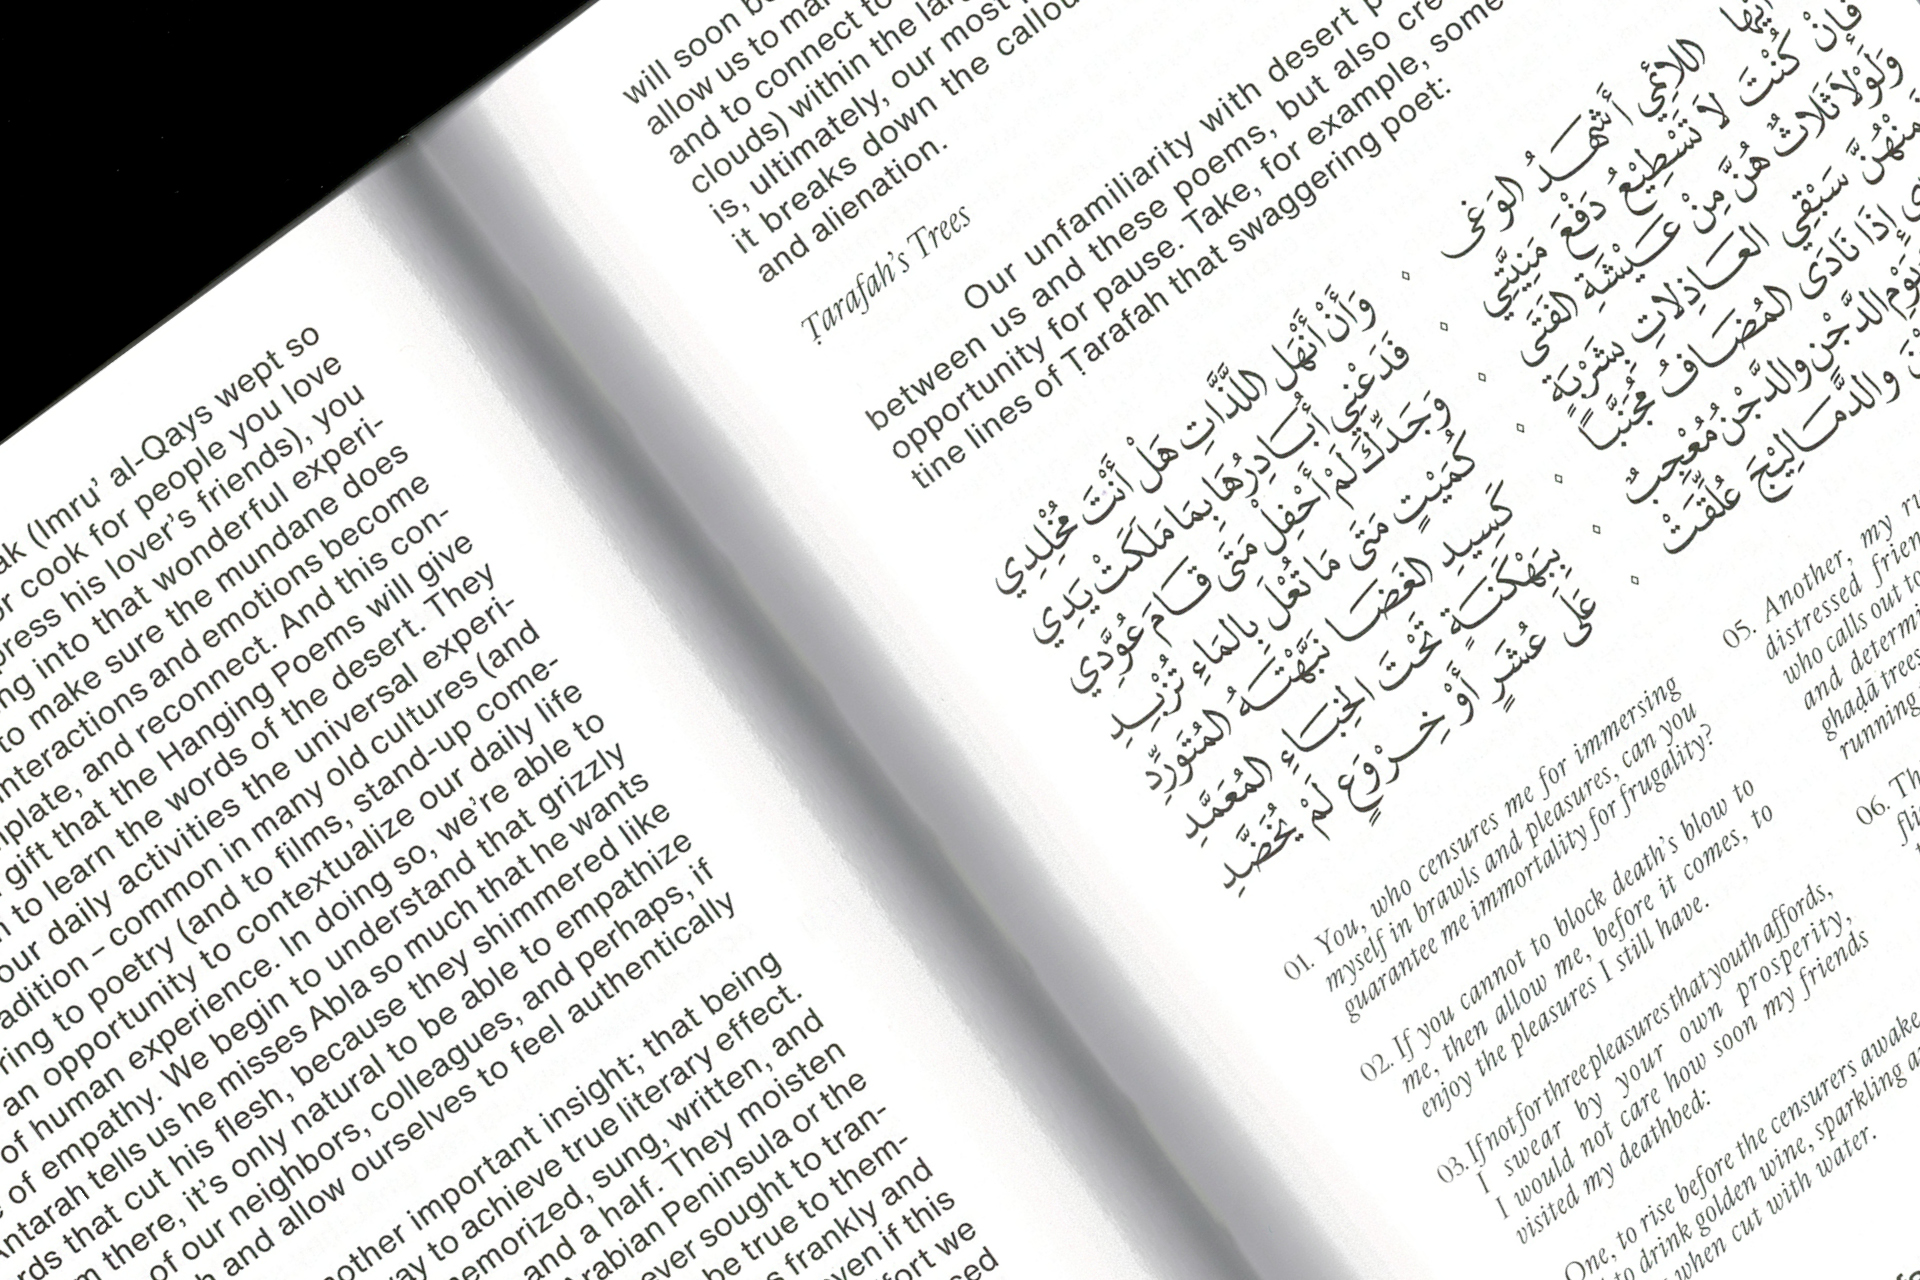 (Imru’ al-Qays wept so
cook for people you love
press his lover’s friends), you
into that wonderful experi-
to make sure the mundane does
interactions and emotions become
and reconnect. And this con-
gift that the Hanging Poems will give
to learn the words of the desert. They
our daily activities the universal experi-
– common in many old cultures (and
to poetry (and to films, stand-up come-
an opportunity to contextualize our daily life
of human experience. In doing so, we’re able to
of empathy. We begin to understand that grizzly
Antarah tells us he misses Abla so much that he wants
that cut his flesh, because they shimmered like
there, it’s only natural to be able to empathize
of our neighbors, colleagues, and perhaps, if
and allow ourselves to feel authentically
other important insight; that being
to achieve true literary effect.
memorized, sung, written, and
and a half. They moisten
Arabian Peninsula or the
ever sought to tran-
be true to them-
frankly and
even if this
we
will soon
allow us to
and to connect to
clouds) within the
is, ultimately, our most
it breaks down the
and alienation.
Ṭarafah’s Trees
Our unfamiliarity with desert
between us and these poems, but also
opportunity for pause. Take, for example, some
tine lines of Ṭarafah that swaggering poet:
اللائِمِي أَشْهَدُ الوَغَى ◇ وَأَنْ أَنْهَل اللَّذَّاتِ هَلْ أَنْتَ مُخْلِدِي
فَإِنْ كُنْتَ لَا تَسْطِيْعُ دَفْعَ مَنِيَّتِي ◇ فَدَعْنِي أُبَادِرُهَا بِمَا مَلَكَتْ يَدِي
وَلَوْلَا ثَلاثٌ هُنَّ مِنْ عَيْشَةِ الفَتَى ◇ وَجَدِّكَ لَمْ أَحْفِلْ مَتَى قَامَ عُوَّدِي
مِنْهُنَّ سَبْقِي العَاذِلاتِ بِشَرْبَةٍ ◇ كُمَيْتٍ مَتَى مَا تُعْلَ بِالمَاءِ تُزْبِدِ
إِذَا نَادَى المُضَافُ مُجَنَّباً ◇ كَسِيدِ الغَضَا نَبَّهْتَهُ المُتَوَرِّدِ
يَوْمِ الدَّجْنِ والدَّجْنُ مُعْجِبٌ ◇ بِبَهْكَنَةٍ تَحْتَ الخِبَاءِ المُعَمَّدِ
والدَّمَالِيْجَ عُلِّقَتْ ◇ عَلَى عُشَرٍ أَوْ خِرْوَعٍ لَمْ يُخَضَّدِ
01. You, who censures me for immersing
myself in brawls and pleasures, can you
guarantee me immortality for frugality?
02. If you cannot to block death’s blow to
me, then allow me, before it comes, to
enjoy the pleasures I still have.
03. If not for three pleasures that youth affords,
I swear by your own prosperity,
I would not care how soon my friends
visited my deathbed:
One, to rise before the censurers awake
to drink golden wine, sparkling
when cut with water.
05. Another, my
distressed
who calls out to
and
ghaḍā trees
running
06.